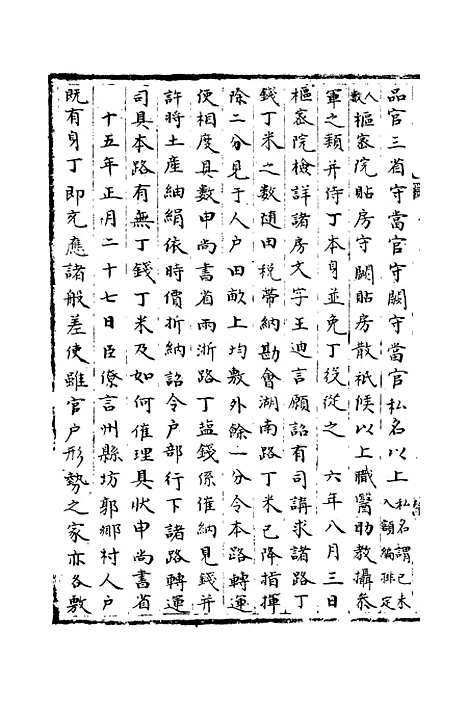 品官三省守當官守闕守當官私名以上私名謂已未入額編排定
人數樞密院貼房守闕貼房散祗候以上職醫助教攝叅
軍之類并侍丁本身並免丁役從之　六年八月三日
樞密院檢詳諸房文字王迪言願詔有司講求諸路丁
錢丁米之數隨田稅帶納勘會湖南路丁米已降指揮
除二分見于人户田畝上均敷外餘一分令本路轉運
便相度具數申尚書省兩浙路丁盐錢係催納見錢并
許時土産紬絹依時價折納詔令户部行下諸路轉運
司具本路有無丁錢丁米及如何催理具狀申尚書省
十五年正月二十七日臣僚言州縣坊郭鄉村人户
既有身丁即充應諸般差使雖官户形勢之家亦各敷